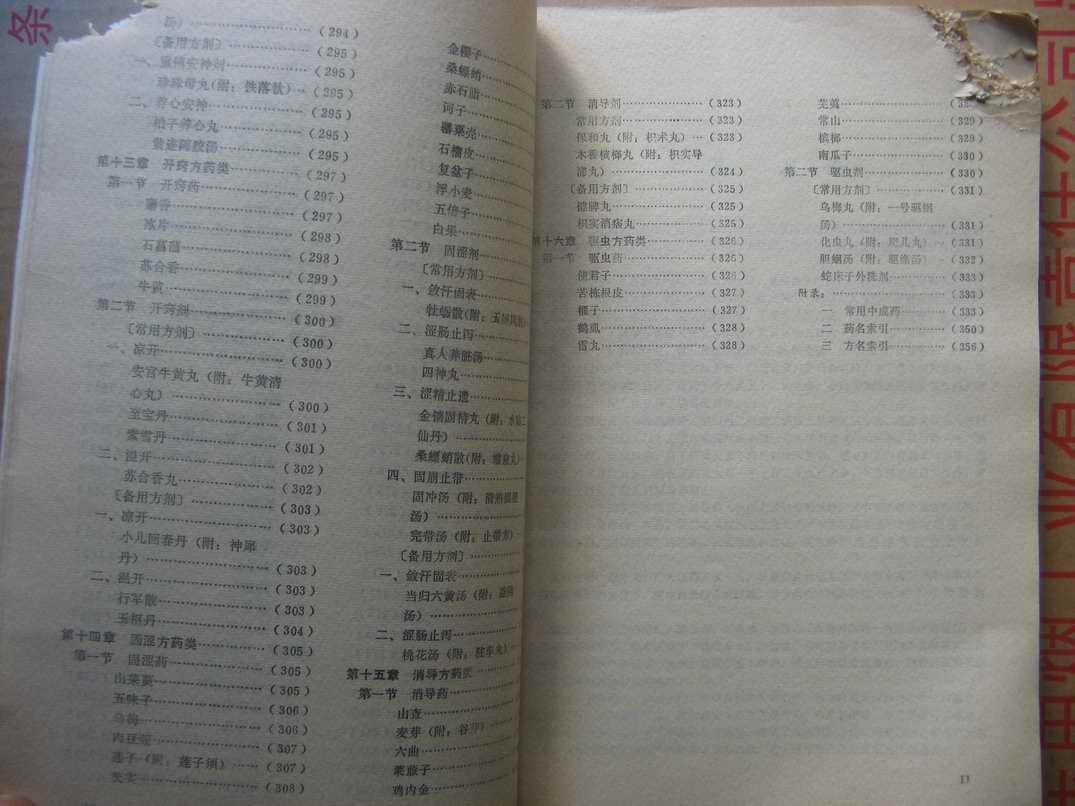 条
汤)……(294)
〔备用方剂〕……(295)
一、重镇安神剂……(295)
珍珠母丸(附:铁落饮)……(295)
二、养心安神……(295)
柏子养心丸……(295)
黄连阿胶汤……(295)
第十三章 开窍方药类……(297)
第一节 开窍药……(297)
麝香……(297)
冰片……(298)
石菖蒲……(298)
苏合香……(299)
牛黄……(299)
第二节 开窍剂……(300)
〔常用方剂〕……(300)
一、凉开……(300)
安宫牛黄丸(附:牛黄清
心丸)……(300)
至宝丹……(301)
紫雪丹……(301)
二、温开……(302)
苏合香丸……(302)
〔备用方剂〕……(303)
一、凉开……(303)
小儿回春丹(附:神犀
丹)……(303)
二、温开……(303)
行军散……(303)
玉枢丹……(304)
第十四章 固涩方药类……(305)
第一节 固涩药……(305)
山茱萸……(305)
五味子……(306)
乌梅……(306)
肉豆蔻……(307)
莲子(附:莲子须)……(307)
芡实……(308)
金樱子……
桑螵蛸……
赤石脂……
诃子……
罂粟壳……
石榴皮……
复盆子……
浮小麦……
五倍子……
白果……
第二节 固涩剂……
〔常用方剂〕……
一、敛汗固表……
牡蛎散(附:玉屏风散)
二、涩肠止泻……
真人养脏汤……
四神丸……
三、涩精止遗……
金锁固精丸(附:水陆二
仙丹)……
桑螵蛸散(附:缩泉丸)
四、固崩止带……
固冲汤(附:清热固经
汤)……
完带汤(附:止带方)
〔备用方剂〕……
一、敛汗固表……
当归六黄汤(附:
汤)……
二、涩肠止泻……
桃花汤(附:驻车丸)
第十五章 消导方药类
第一节 消导药……
山查……
麦芽(附:谷芽)……
六曲……
莱菔子……
鸡内金……
第二节 消导剂……(323)
常用方剂……(323)
保和丸(附:枳术丸)……(323)
木香槟榔丸(附:枳实导
滞丸)……(324)
〔备用方剂〕……(325)
健脾丸……(325)
枳实消痞丸……(325)
第十六章 驱虫方药类……(326)
第一节 驱虫药……(326)
使君子……(326)
苦楝根皮……(327)
榧子……(327)
鹤虱……(328)
雷丸……(328)
芜荑……
常山……(329)
槟榔……(329)
南瓜子……(330)
第二节 驱虫剂……(330)
〔常用方剂〕……(331)
乌梅丸(附:一号驱蛔
汤)……(331)
化虫丸(附:肥儿丸)……(331)
胆蛔汤(附:驱绦汤)……(332)
蛇床子外洗剂……(333)
附录:……(333)
一 常用中成药……(333)
二 药名索引……(350)
三 方名索引……(356)
11
业有限责任公司